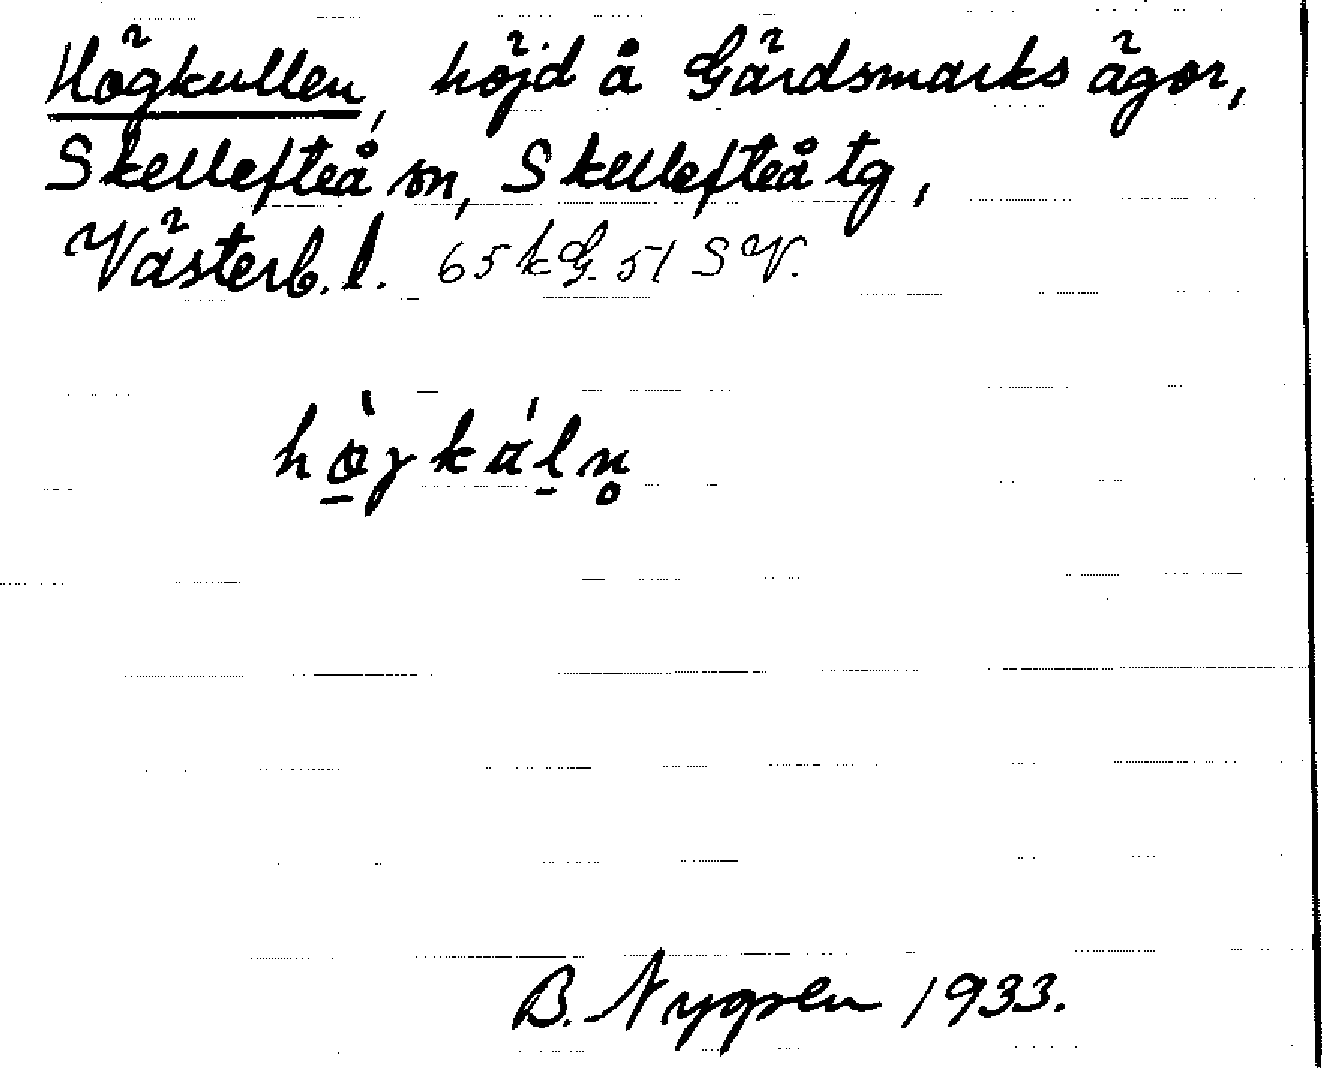 Högkullen, höjd å Gärdsmarks ägor,
Skellefteå sn, Skellefteå tg,
Västerb. l. 65 kG. 51 SV.
B. Nygren 1933.